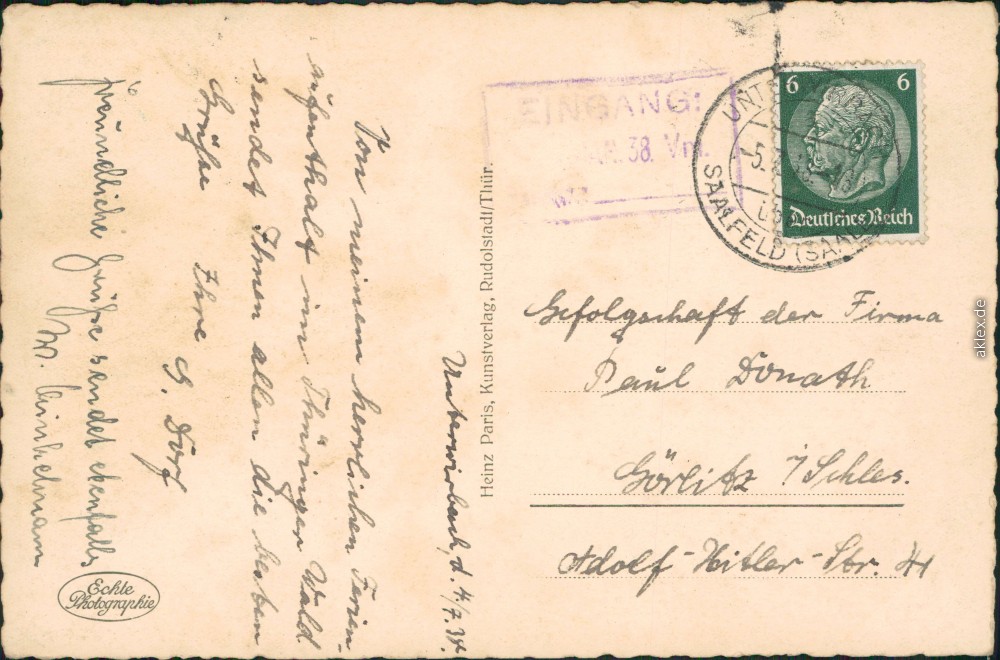 Unterwirbach, d. 4/7.38.
Von meinem herrlichen Ferien-
aufenthalt im Thüringer Wald
sendet Ihnen allen die besten
Grüße Ihre G. Dorf
freundliche Grüße sendet ebenfalls
W.
Echte
Photographie
Heinz Paris, Kunstverlag, Rudolstadt/Thür.
EINGANG:
38. Vm.
6 6
Deutsches Reich
UNT
5.
SAALFELD (SAALE)
Gefolgschaft der Firma
Paul Donath
Görlitz i/Schles.
Adolf-Hitler-Str. 41
aklex.de